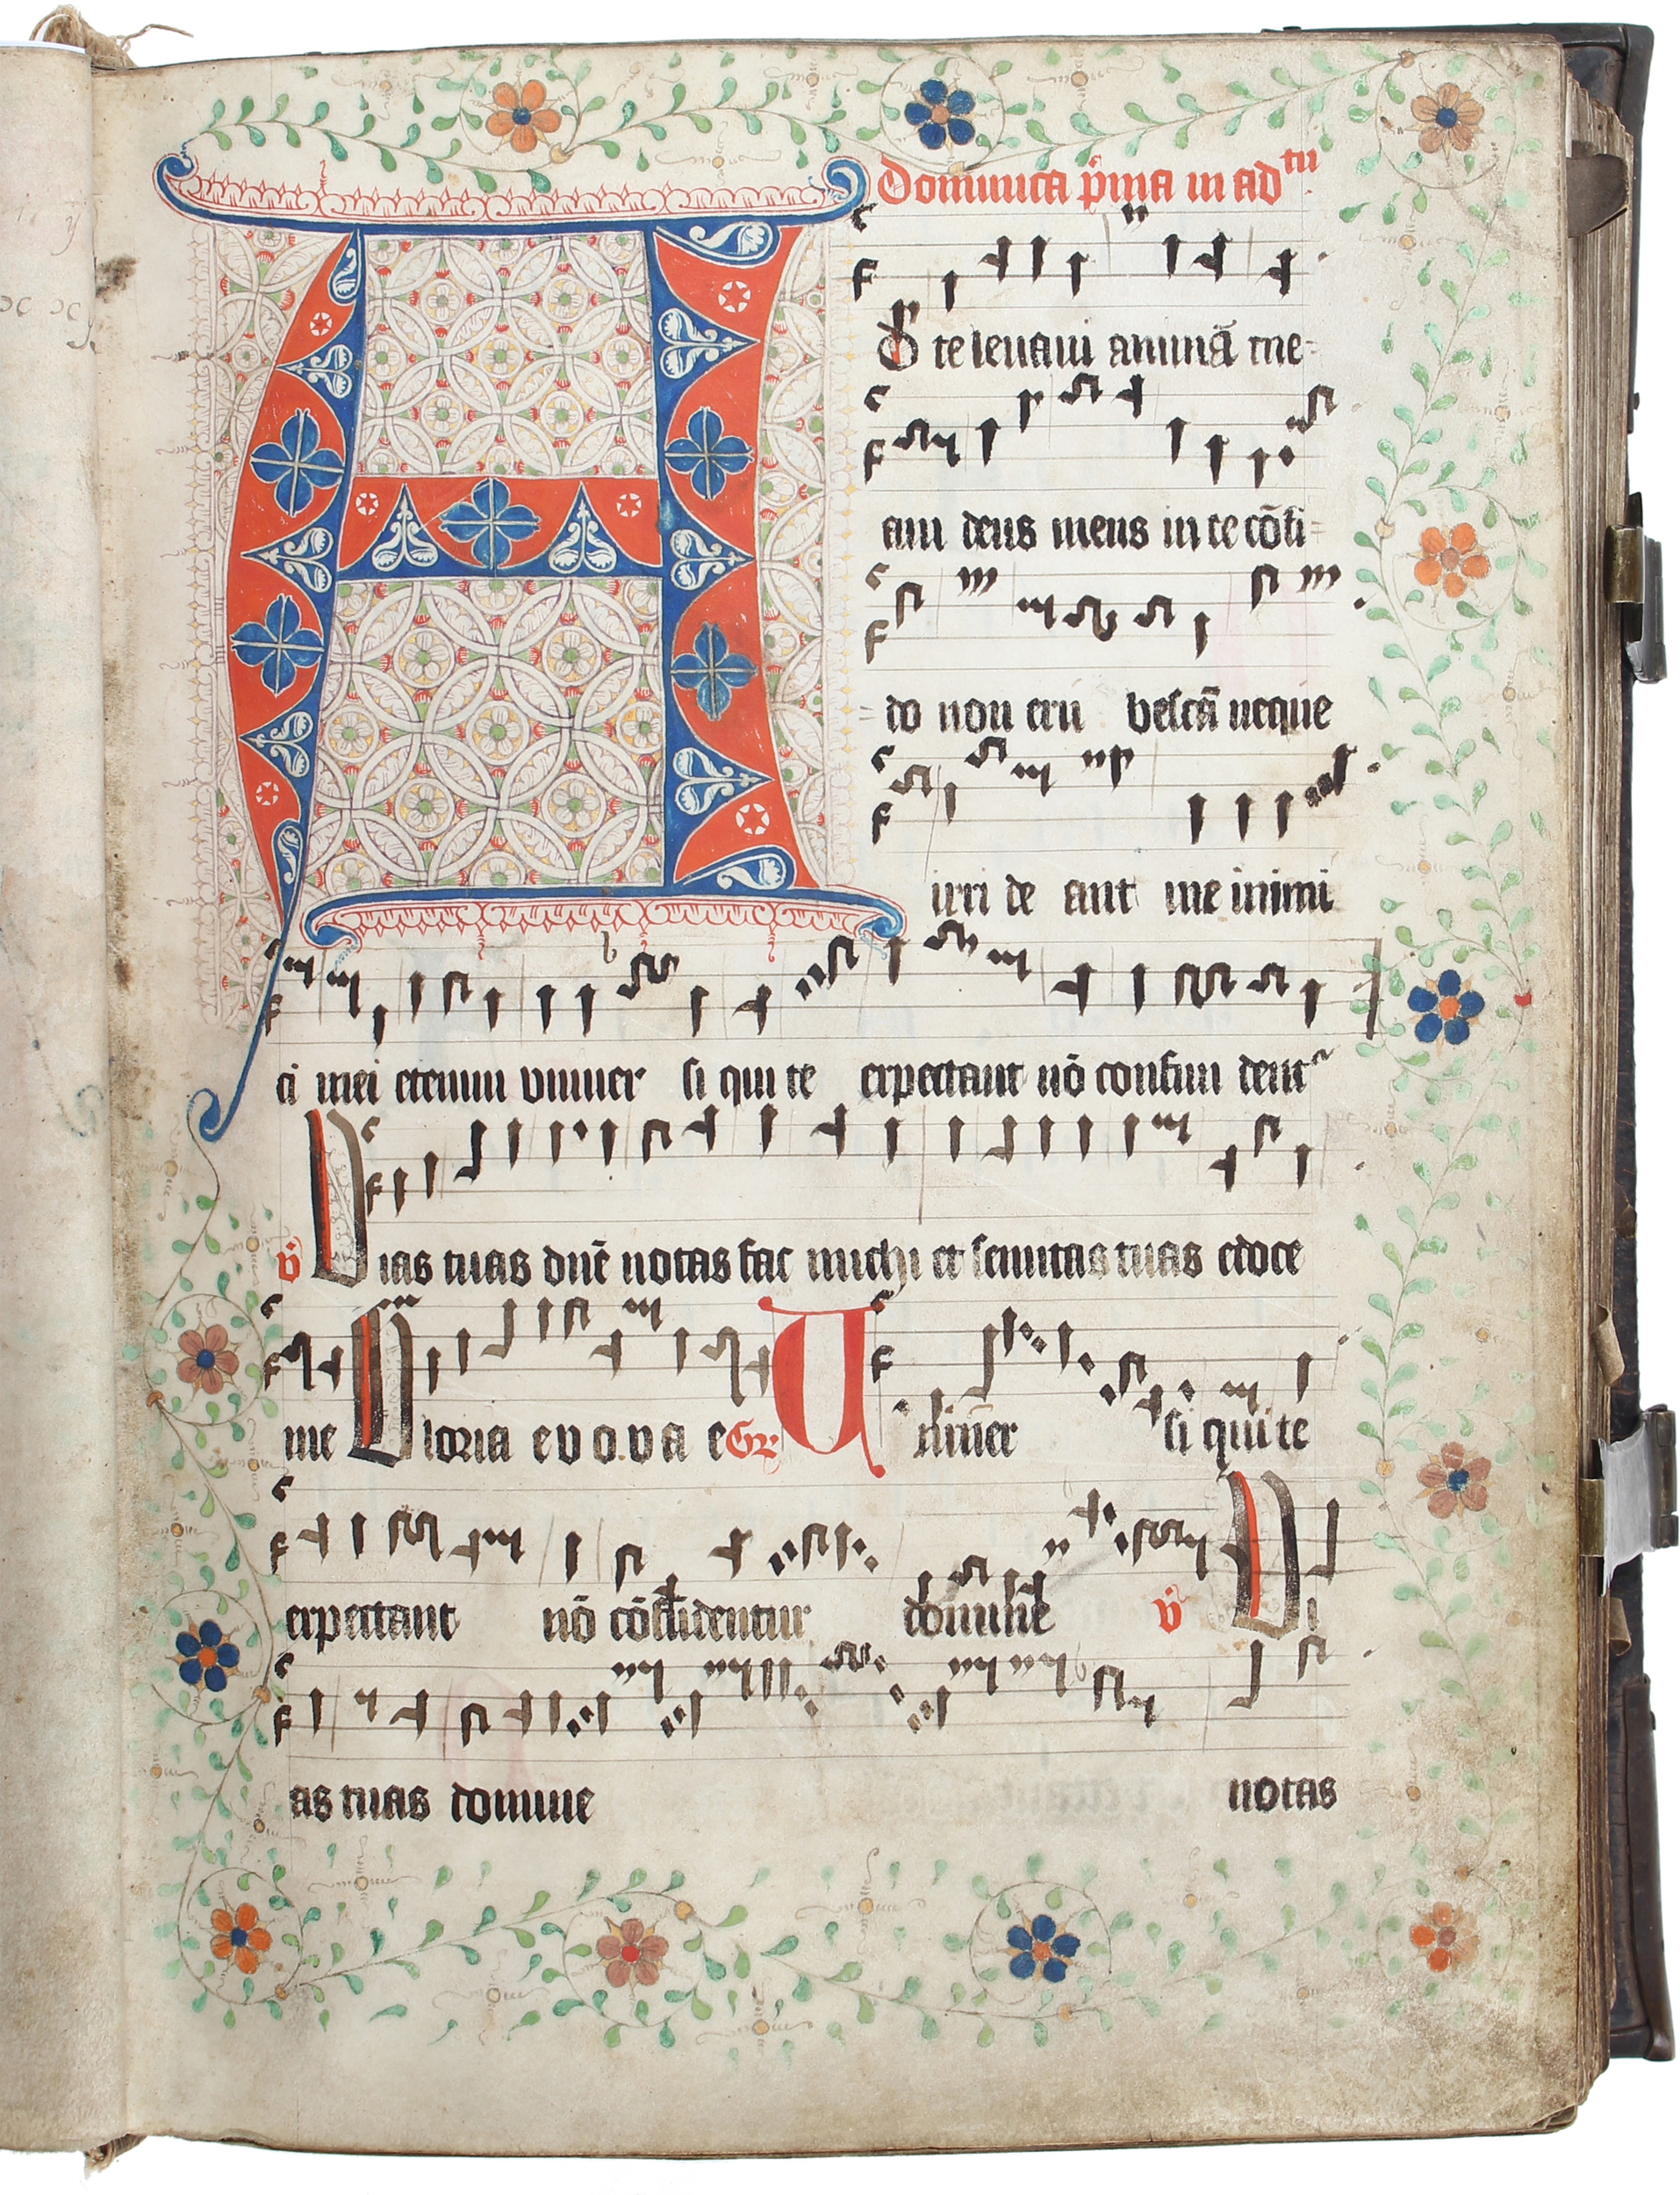 Dominica p̄ma in adtū
A D te leuaui animā me=
am deus meus in te cōfi=
=do non eru bescā neque
irri de ant me inimi
ci mei etenim vniuer si qui te expectant nō confun dentr
v̄ Vias tuas dn̄e notas fac michi et semitas tuas edoce
me Gloria e v o.v a e Gr̄ Vniūer si qui te
expectant nō cōfūdentur domine v̄ Vi
as tuas domine notas